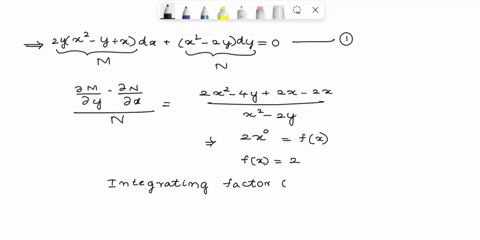 ⇒ 2y(x² - y + x) dx + (x² - 2y) dy = 0 ——— ①
M N
∂M/∂y - ∂N/∂x / N = 2x² - 4y + 2x - 2x / x² - 2y
⇒ 2x⁰ = f(x)
f(x) = 2
Integrating factor (